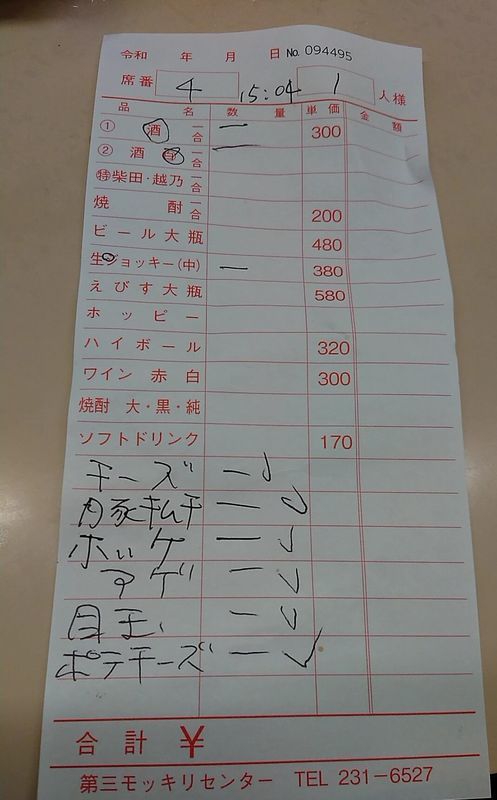 令和 年 月 日 No. 094495
席番 4 15:04 1 人様
品名 数量 単価 金額
① 酒 一合 二 300
② 酒 一合
特 柴田・越乃 一合
焼酎 一合 200
ビール大瓶 480
生ジョッキー(中) 一 380
えびす大瓶 580
ホッピー
ハイボール 320
ワイン 赤白 300
焼酎 大・黒・純
ソフトドリンク 170
チーズ 一 ✓
肉豕キムチ 一 ✓
ホッケ 一 ✓
アゲ 一 ✓
目玉 一 ✓
ポテチーズ 一 ✓
合計 ¥
第三モッキリセンター TEL 231-6527